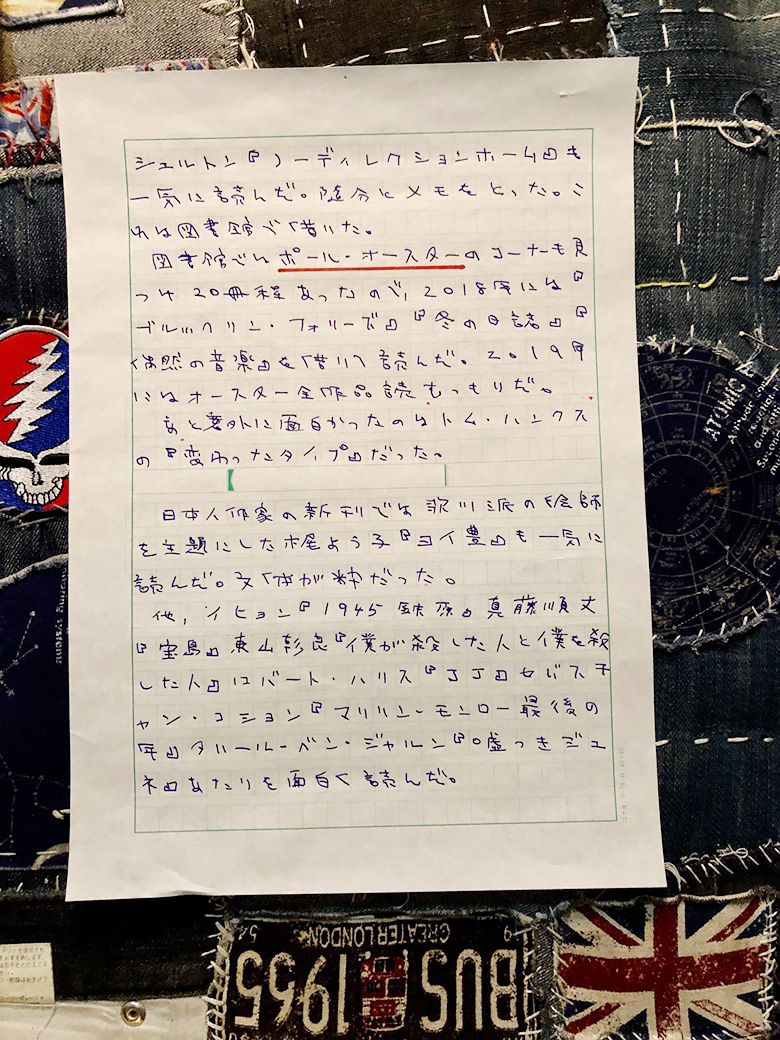 シェルトン『ノーディレクションホーム』も
一気に読んだ。随分とメモをとった。こ
れは図書館で借りた。
図書館でポール・オースターのコーナーも見
つけ20冊程あったので、2018年には『
ブルックリン・フォリーズ』『冬の日誌』『
偶然の音楽』を借りて読んだ。2019年
にはオースター全作品読むつもりだ。
あと意外に面白かったのはトム・ハンクス
の『変わったタイプ』だった。
日本人作家の新刊では歌川派の絵師
を主題にした梶よう子『ヨイ豊』も一気に
読んだ。文体が粋だった。
他、イ・ヒョン『1945鉄原』真藤順丈
『宝島』東山彰良『僕が殺した人と僕を殺
した人』ロバート・ハリス『JJ』セバスチ
ャン・コション『マリリン・モンロー最後の
年』タハール・ベン・ジャルン『嘘つきジュ
ネ』あたりを面白く読んだ。
ATOMIC
BUS
1965
GREATER LONDON
54